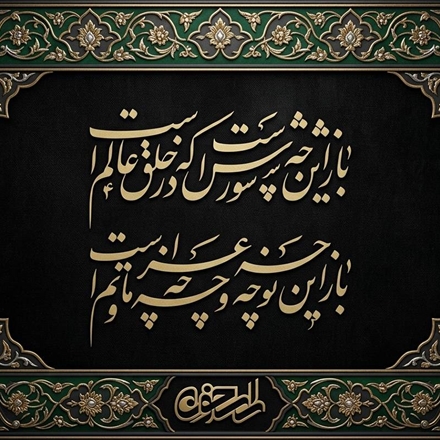 باز این چه شورش است که در خلق عالم است
باز این نوچه و چه عزا و ماتم است